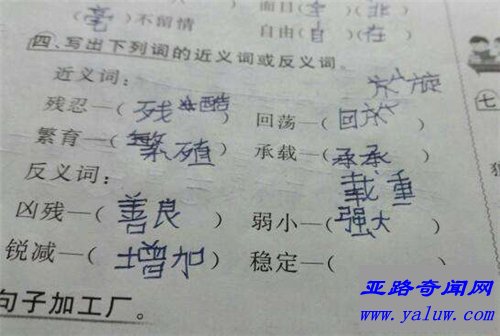 (毫)不留情 面目(全)(非)
自由(自)(在)
四、写出下列词的近义词或反义词。
近义词：
残忍—(残酷) 回荡—(回放)
繁育—(繁殖) 承载—(承承)
反义词： 载重
凶残—(善良) 弱小—(强大)
锐减—(增加) 稳定—( )
句子加工厂。
七
亚路奇闻网
www.yaluw.com